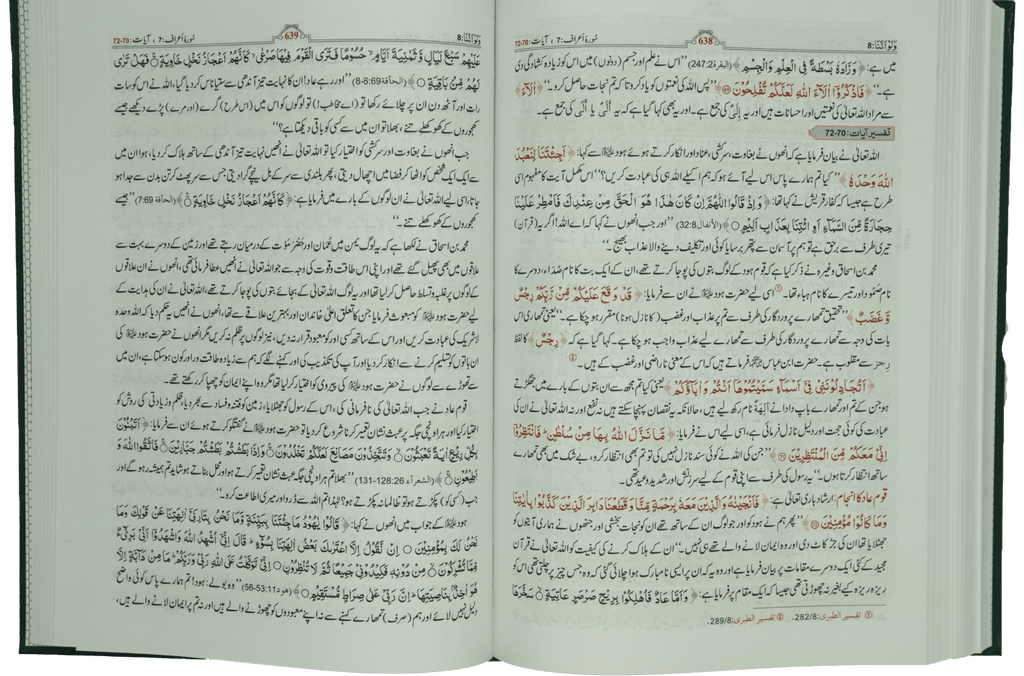 وَلَوْ اَنَّنَا: 8
638
سُورۂ اَعراف: 7 ، آیات: 70-72
میں ہے: ﴿وَزَادَهٗ بَسْطَةً فِی الْعِلْمِ وَالْجِسْمِ﴾ (البقرۃ 247:2) ’’اس نے علم اور جسم (دونوں) میں اس کو زیادہ کشادگی دی
ہے۔‘‘ ﴿فَاذْكُرُوْۤا اٰلَآءَ اللّٰهِ لَعَلَّكُمْ تُفْلِحُوْنَ﴾ ’’پس اللہ کی نعمتوں کو یاد کرو تاکہ تم نجات حاصل کرو۔‘‘ ﴿اٰلَآءَ﴾
سے مراد اللہ تعالیٰ کی نعمتیں اور احسانات ہیں اور یہ اِلًی کی جمع ہے۔ اور یہ بھی کہا گیا ہے کہ یہ اَلًی یا اُلًی کی جمع ہے۔
تفسیر آیات: 70-72
اللہ تعالیٰ نے بیان فرمایا ہے کہ انھوں نے بغاوت، سرکشی، عناد اور انکار کرتے ہوئے ہود علیہ السلام سے کہا: ﴿اَجِئْتَنَا لِنَعْبُدَ
اللّٰهَ وَحْدَهٗ﴾ ’’کیا تم ہمارے پاس اس لیے آئے ہو کہ ہم اکیلے اللہ ہی کی عبادت کریں؟‘‘ اس مکمل آیت کا مفہوم اسی
طرح ہے جیسا کہ کفار قریش نے کہا تھا: ﴿وَاِذْ قَالُوا اللّٰهُمَّ اِنْ كَانَ هٰذَا هُوَ الْحَقَّ مِنْ عِنْدِكَ فَاَمْطِرْ عَلَیْنَا
حِجَارَةً مِّنَ السَّمَآءِ اَوِ ائْتِنَا بِعَذَابٍ اَلِیْمٍ﴾ (الأنفال 32:8) ’’اور جب انھوں نے کہا کہ اے اللہ! اگر یہ (قرآن)
تیری طرف سے برحق ہے تو ہم پر آسمان سے پتھر برسا یا کوئی اور تکلیف دینے والا عذاب بھیج۔‘‘
محمد بن اسحاق وغیرہ نے ذکر کیا ہے کہ قوم ہود کے لوگ بتوں کی پوجا کرتے تھے، ان کے ایک بت کا نام صُدَاء، دوسرے کا
نام صَمُود اور تیسرے کا نام ہباء تھا۔① اسی لیے حضرت ہود علیہ السلام نے ان سے فرمایا: ﴿قَدْ وَقَعَ عَلَیْكُمْ مِّنْ رَّبِّكُمْ رِجْسٌ
وَّغَضَبٌ﴾ ’’تحقیق تمھارے پروردگار کی طرف سے تم پر عذاب اور غضب (کا نازل ہونا) مقرر ہو چکا ہے۔‘‘ یعنی تمھاری اس
بات کی وجہ سے تمھارے پروردگار کی طرف سے تمھارے لیے عذاب واجب ہو چکا ہے۔ کہا گیا ہے کہ ﴿رِجْسٌ﴾ کا لفظ
رِجز سے مقلوب ہے۔ حضرت ابن عباس فرماتے ہیں کہ اس کے معنی ناراضی اور غضب کے ہیں۔②
﴿اَتُجَادِلُوْنَنِیْ فِیْۤ اَسْمَآءٍ سَمَّیْتُمُوْهَاۤ اَنْتُمْ وَاٰبَآؤُكُمْ﴾ یعنی کیا تم مجھ سے ان بتوں کے بارے میں جھگڑتے
ہو جن کے تم اور تمھارے باپ دادا نے آلِهَةٌ نام رکھ لیے ہیں، حالانکہ یہ نقصان پہنچا سکتے ہیں نہ نفع اور نہ اللہ نے ان کی
عبادت کی کوئی حجت اور دلیل نازل فرمائی ہے، اسی لیے اس نے فرمایا: ﴿مَّا نَزَّلَ اللّٰهُ بِهَا مِنْ سُلْطٰنٍ فَانْتَظِرُوْۤا
اِنِّیْ مَعَكُمْ مِّنَ الْمُنْتَظِرِیْنَ﴾ ’’جن کی اللہ نے کوئی سند نازل نہیں کی تو تم بھی انتظار کرو، بے شک میں بھی تمھارے
ساتھ انتظار کرتا ہوں۔‘‘ یہ رسول کی طرف سے اپنی قوم کے لیے سرزنش اور شدید وعید تھی۔
قوم عاد کا انجام: ارشاد باری تعالیٰ ہے: ﴿فَاَنْجَیْنٰهُ وَالَّذِیْنَ مَعَهٗ بِرَحْمَةٍ مِّنَّا وَقَطَعْنَا دَابِرَ الَّذِیْنَ كَذَّبُوْا بِاٰیٰتِنَا
وَمَا كَانُوْا مُؤْمِنِیْنَ﴾ ’’پھر ہم نے ہود کو اور جو لوگ ان کے ساتھ تھے ان کو نجات بخشی اور جنھوں نے ہماری آیتوں کو
جھٹلایا تھا ان کی جڑ کاٹ دی اور وہ ایمان لانے والے تھے ہی نہیں۔‘‘ ان کے ہلاک کرنے کی کیفیت کو اللہ تعالیٰ نے قرآن
مجید کے کئی ایک دوسرے مقامات پر بیان فرمایا ہے اور وہ یہ کہ ان پر ایسی نامبارک ہوا چلائی گئی کہ وہ جس چیز پر چلتی تھی اس کو
ریزہ ریزہ کیے بغیر نہ چھوڑتی تھی جیسا کہ ایک مقام پر فرمایا ہے: ﴿وَاَمَّا عَادٌ فَاُهْلِكُوْا بِرِیْحٍ صَرْصَرٍ عَاتِیَةٍ سَخَّرَهَا
① تفسیر الطبری: 282/8. ② تفسیر الطبری: 289/8.
وَلَوْ اَنَّنَا: 8
639
سُورۂ اَعراف: 7 ، آیات: 70-72
عَلَیْهِمْ سَبْعَ لَیَالٍ وَّثَمٰنِیَةَ اَیَّامٍ حُسُوْمًا فَتَرَی الْقَوْمَ فِیْهَا صَرْعٰی كَاَنَّهُمْ اَعْجَازُ نَخْلٍ خَاوِیَةٍ فَهَلْ تَرٰی
لَهُمْ مِّنْ بَاقِیَةٍ﴾ (الحاقۃ 6:69-8) ’’اور رہے عاد! ان کا نہایت تیز آندھی سے ستیاناس کر دیا گیا، اللہ نے اس کو سات
رات اور آٹھ دن ان پر چلائے رکھا تو (اے مخاطب!) تو لوگوں کو اس میں (اس طرح) گرے (اور مرے) پڑے دیکھے جیسے
کھجوروں کے کھوکھلے تنے، بھلا تو ان میں سے کسی کو باقی دیکھتا ہے؟‘‘
جب انھوں نے بغاوت اور سرکشی کو اختیار کیا تو اللہ تعالیٰ نے انھیں نہایت تیز آندھی کے ساتھ ہلاک کر دیا، ہوا ان میں
سے ایک ایک شخص کو اٹھا کر فضا میں اچھال دیتی، پھر بلندی سے سر کے بل نیچے گرا دیتی جس سے سر پھٹ کر تن بدن سے جدا ہو
جاتا، اسی لیے اللہ تعالیٰ نے ان لوگوں کے بارے میں فرمایا ہے: ﴿كَاَنَّهُمْ اَعْجَازُ نَخْلٍ خَاوِیَةٍ﴾ (الحاقۃ 7:69) ’’جیسے
کھجوروں کے کھوکھلے تنے۔‘‘
محمد بن اسحاق نے لکھا ہے کہ یہ لوگ یمن میں عُمَان اور حَضْرَمَوْت کے درمیان رہتے تھے اور زمین کے دوسرے بہت سے
علاقوں میں بھی پھیل گئے تھے اور اپنی اس طاقت و قوت کی وجہ سے جو اللہ تعالیٰ نے انھیں عطا فرمائی تھی، انھوں نے ان علاقوں
کے لوگوں پر غلبہ و تسلط حاصل کر لیا تھا اور یہ لوگ اللہ تعالیٰ کے بجائے بتوں کی پوجا کرتے تھے، اللہ تعالیٰ نے ان کی ہدایت کے
لیے حضرت ہود علیہ السلام کو مبعوث فرمایا جن کا تعلق اعلیٰ خاندان اور بہترین علاقے سے تھا، انھوں نے انھیں حکم دیا کہ اللہ وحدہ
لاشریک کی عبادت کریں اور اس کے ساتھ کسی اور کو معبود قرار نہ دیں، نیز لوگوں پر ظلم نہ کریں مگر انھوں نے حضرت ہود علیہ السلام کی
ان باتوں کو تسلیم کرنے سے انکار کر دیا اور آپ کی تکذیب کی اور کہنے لگے کہ ہم سے زیادہ طاقت ور اور کون ہو سکتا ہے، ان میں
سے تھوڑے سے لوگوں نے حضرت ہود علیہ السلام کی پیروی کو اختیار کر لیا تھا مگر وہ اپنے ایمان کو چھپا کر رکھتے تھے۔
قوم عاد نے جب اللہ تعالیٰ کی نافرمانی کی، اس کے رسول کو جھٹلایا، زمین کو فتنہ و فساد سے بھر دیا، ظلم و زیادتی کی روش کو
اختیار کیا اور ہر اونچی جگہ پر عبث نشان تعمیر کرنا شروع کر دیا تو حضرت ہود علیہ السلام نے گفتگو کرتے ہوئے ان سے فرمایا: ﴿اَتَبْنُوْنَ
بِكُلِّ رِیْعٍ اٰیَةً تَعْبَثُوْنَ وَتَتَّخِذُوْنَ مَصَانِعَ لَعَلَّكُمْ تَخْلُدُوْنَ وَاِذَا بَطَشْتُمْ بَطَشْتُمْ جَبَّارِیْنَ فَاتَّقُوا اللّٰهَ وَ
اَطِیْعُوْنِ﴾ (الشعرآء 128:26-131) ’’بھلا تم ہر اونچی جگہ عبث نشان تعمیر کرتے ہو اور محل بناتے ہو شاید تم ہمیشہ رہو گے اور
جب (کسی کو) پکڑتے ہو تو ظالمانہ پکڑتے ہو؟ لہٰذا تم اللہ سے ڈرو اور میری اطاعت کرو۔‘‘
ہود علیہ السلام کے جواب میں انھوں نے کہا: ﴿قَالُوْا یٰهُوْدُ مَا جِئْتَنَا بِبَیِّنَةٍ وَّمَا نَحْنُ بِتَارِكِیْۤ اٰلِهَتِنَا عَنْ قَوْلِكَ وَمَا
نَحْنُ لَكَ بِمُؤْمِنِیْنَ اِنْ نَّقُوْلُ اِلَّا اعْتَرٰىكَ بَعْضُ اٰلِهَتِنَا بِسُوْٓءٍ قَالَ اِنِّیْۤ اُشْهِدُ اللّٰهَ وَاشْهَدُوْۤا اَنِّیْ بَرِیْٓءٌ
مِّمَّا تُشْرِكُوْنَ مِنْ دُوْنِهٖ فَكِیْدُوْنِیْ جَمِیْعًا ثُمَّ لَا تُنْظِرُوْنِ اِنِّیْ تَوَكَّلْتُ عَلَی اللّٰهِ رَبِّیْ وَرَبِّكُمْ مَا مِنْ دَآبَّةٍ اِلَّا
هُوَ اٰخِذٌۢ بِنَاصِیَتِهَا اِنَّ رَبِّیْ عَلٰی صِرَاطٍ مُّسْتَقِیْمٍ﴾ (ھود 53:11-56) ’’وہ بولے: ہود! تم ہمارے پاس کوئی واضح
دلیل نہیں لائے اور ہم (صرف) تمھارے کہنے سے نہ اپنے معبودوں کو چھوڑنے والے ہیں اور نہ تم پر ایمان لانے والے ہیں،